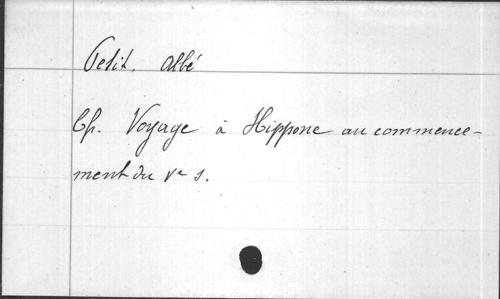 Petit, Abbé
Cf. Voyage à Hippone au commence-
ment du Ve s.